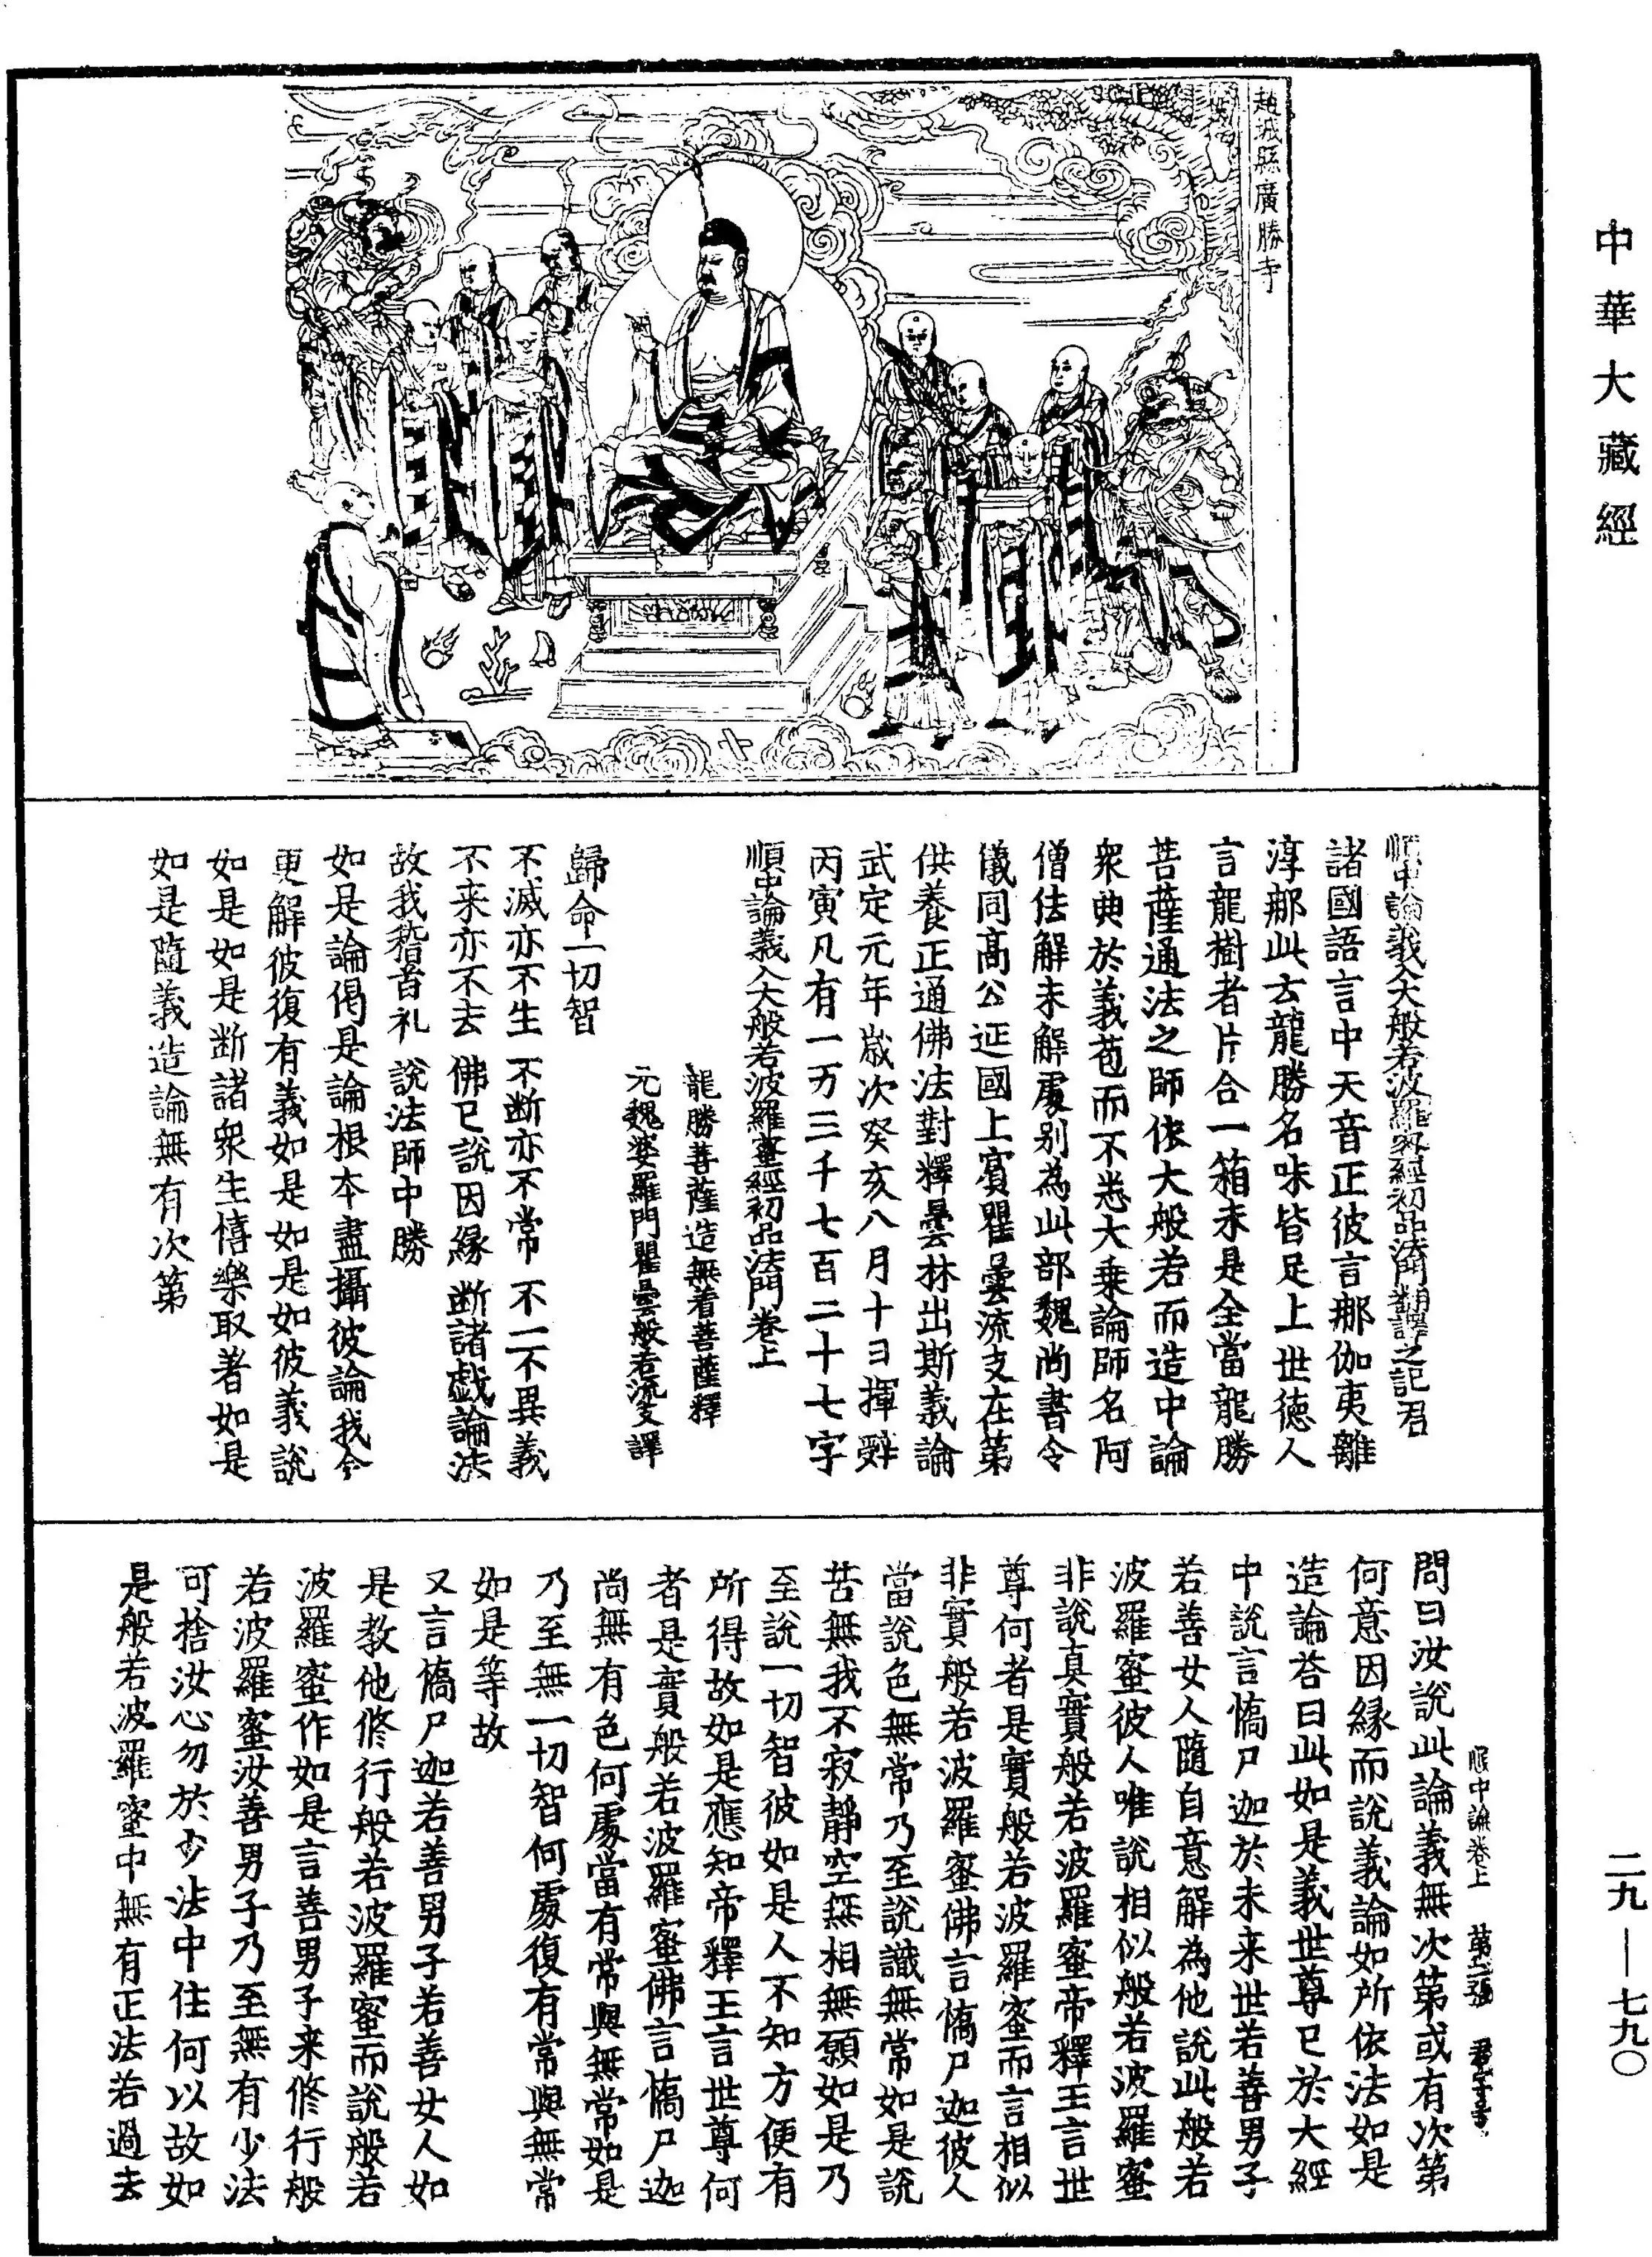 中華大藏經
趙城縣廣勝寺
順中論義入大般若波羅蜜經初品法門翻譯之記 君
諸國語言中天音正彼言那伽夷離
淳那此云龍勝名味皆足上世德人
言龍樹者片合一箱未是全當龍勝
菩薩通法之師依大般若而造中論
衆典於義苞而不悉大乗論師名阿
僧佉解未解處别為此部魏尚書令
儀同高公延國上賓瞿曇流支在第
供養正通佛法對釋曇林出斯義論
武定元年歲次癸亥八月十日揮辞
丙寅凡有一万三千七百二十七字
順中論義入大般若波羅蜜經初品法門卷上
龍勝菩薩造無着菩薩釋
元魏婆羅門瞿曇般若流支譯
歸命一切智
不滅亦不生 不断亦不常 不一不異義
不来亦不去 佛已說因縁 断諸戯論法
故我稽首礼 說法師中勝
如是論偈是論根本盡攝彼論我今
更解彼復有義如是如是如彼義說
如是如是断諸衆生憘樂取著如是
如是隨義造論無有次第
順中論卷上 第二張 君字号
問曰汝說此論義無次第或有次第
何意因縁而說義論如所依法如是
造論荅曰此如是義世尊已於大經
中說言憍尸迦於未来世若善男子
若善女人隨自意解為他說此般若
波羅蜜彼人唯說相似般若波羅蜜
非說真實般若波羅蜜帝釋王言世
尊何者是實般若波羅蜜而言相似
非實般若波羅蜜佛言憍尸迦彼人
當說色無常乃至說識無常如是說
苦無我不寂靜空無相無願如是乃
至說一切智彼如是人不知方便有
所得故如是應知帝釋王言世尊何
者是實般若波羅蜜佛言憍尸迦
尚無有色何處當有常與無常如是
乃至無一切智何處復有常與無常
如是等故
又言憍尸迦若善男子若善女人如
是教他修行般若波羅蜜而說般若
波羅蜜作如是言善男子来修行般
若波羅蜜汝善男子乃至無有少法
可捨汝心勿於少法中住何以故如
是般若波羅蜜中無有正法若過去
二九—七九〇